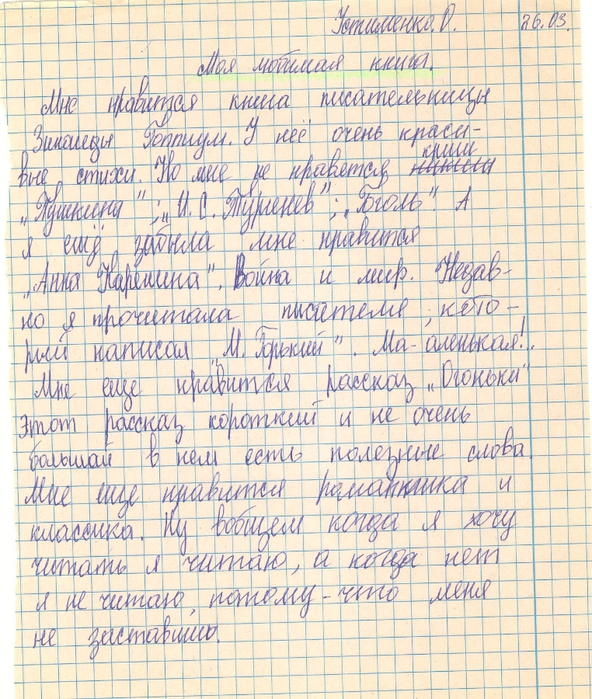 Устименко. О. 26.03.
Моя любимая книга.
Мне нравится книга писательницы
Зинаиды Гоппиум. У неё очень краси-
вые стихи. Но мне не нравется книги
„Пушкина"; „И. С. Тургенев"; „Гоголь" А
я ещё забыла мне нравится
„Анна Каренина". Война и мир. Недав-
но я прочитала писателя, кото-
рый написал „М. Горький". Ма-аленькая!.
Мне еще нравится рассказ „Огоньки"
Этот рассказ короткий и не очень
большай в нем есть полезные слова
Мне еще нравится романтика и
классика. Ну вобщем когда я хочу
читать я читаю, а когда нет
я не читаю, потому-что меня
не заставишь.